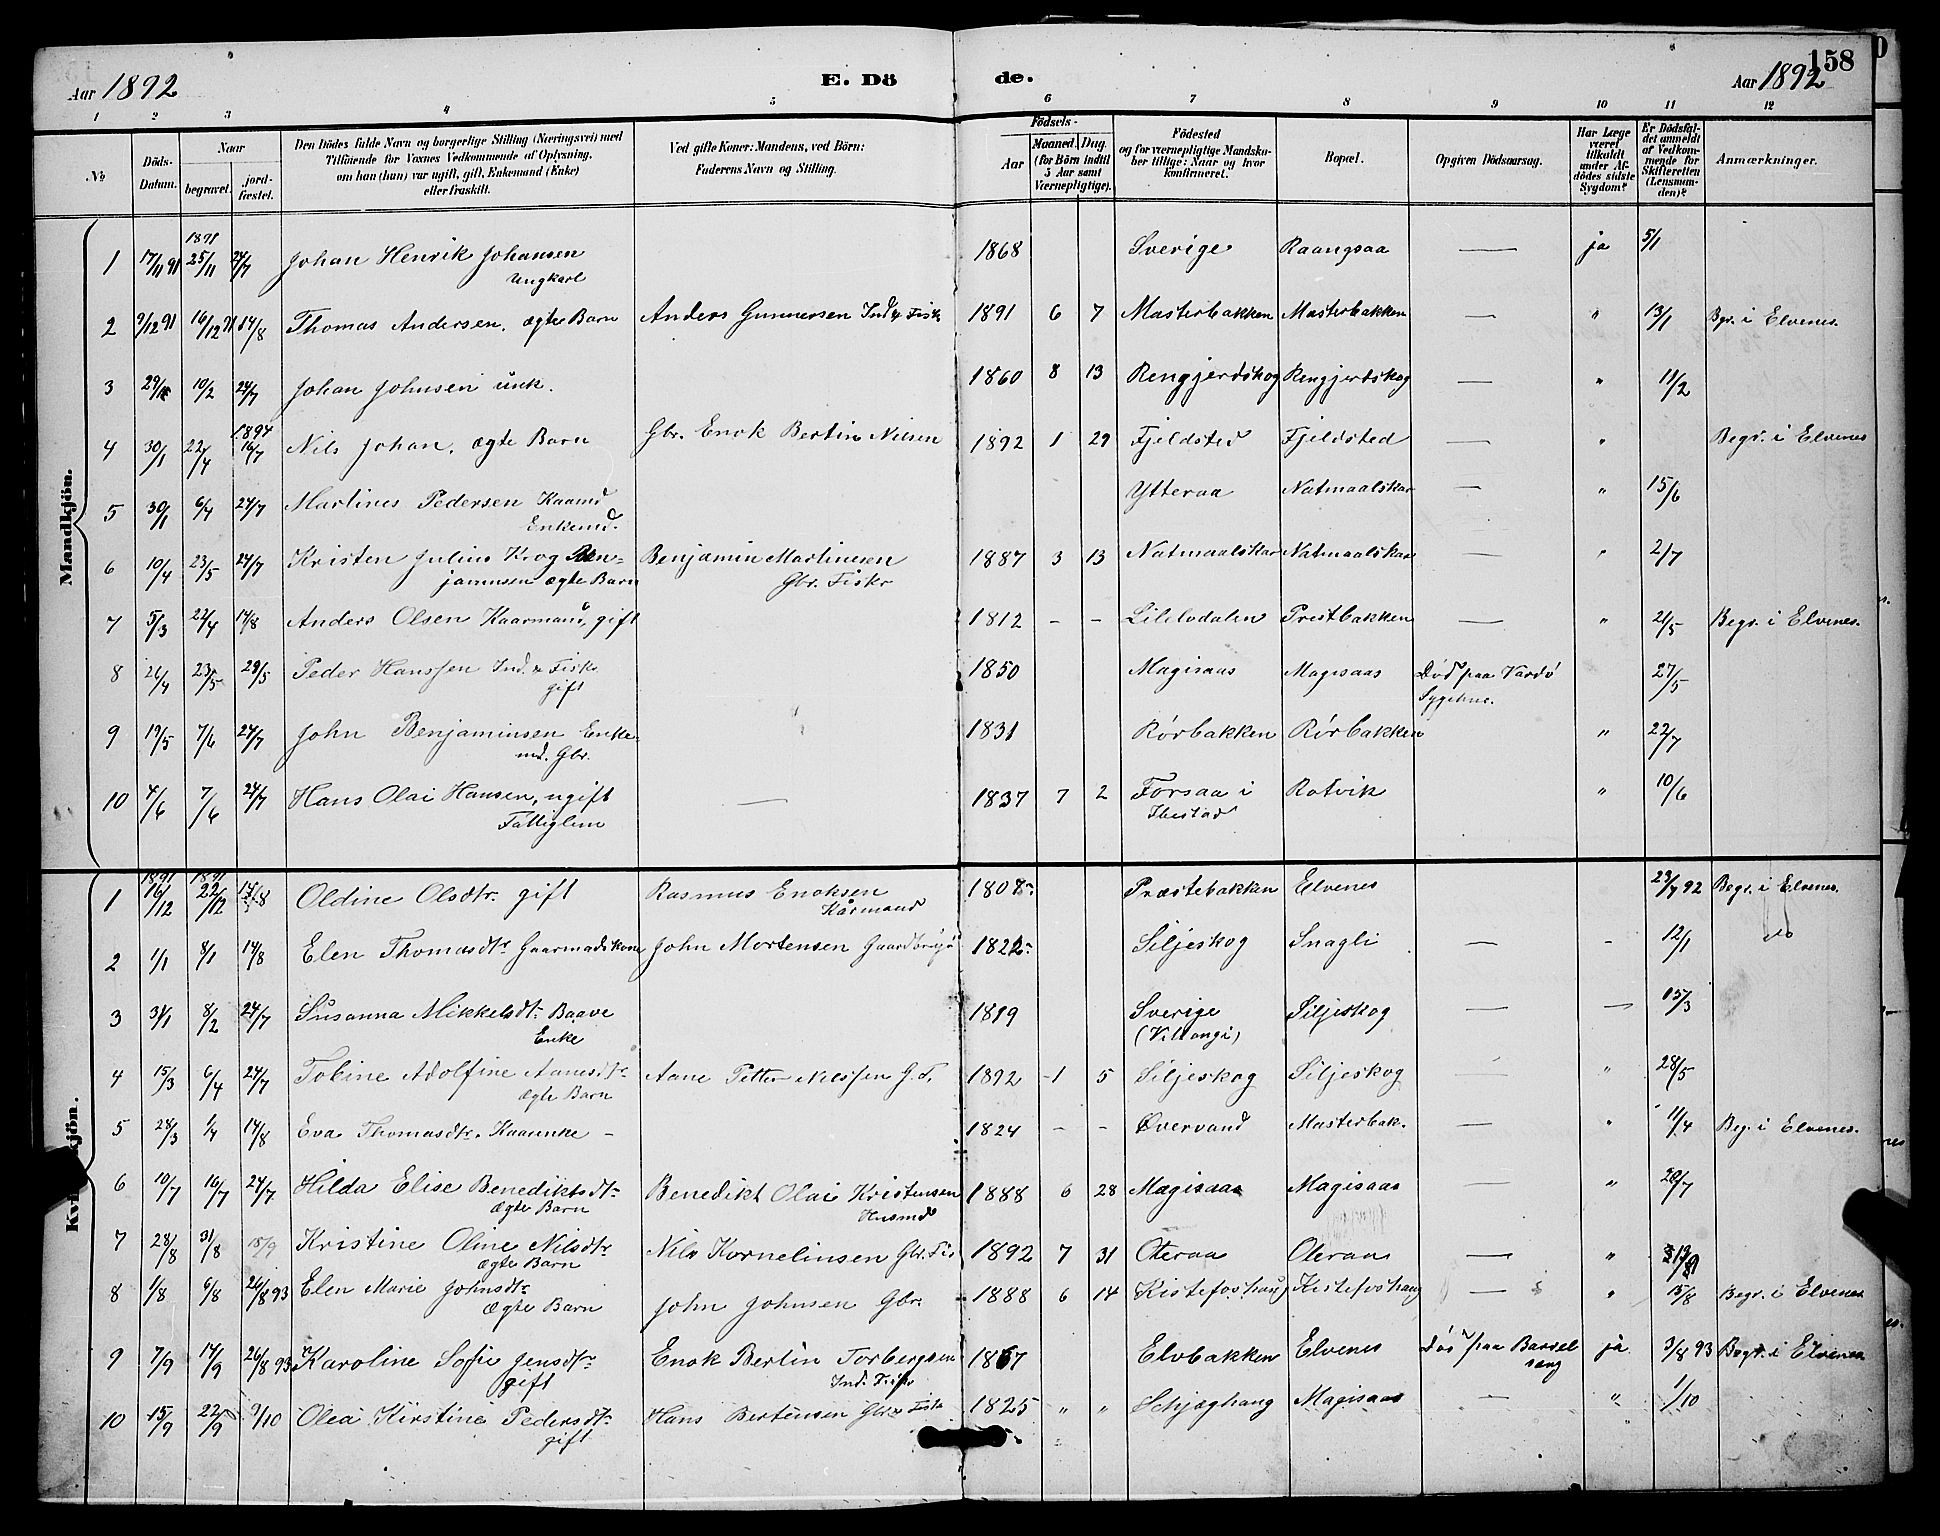 158
Aar 1892 E. Dö de. Aar 1892
1 2 3 4 5 6 7 8 9 10 11 12
No. Döds-Datum. Naar begravet. jord-fæstet. Den Dödes fulde Navn og borgerlige Stilling (Næringsvei) med Tilföiende for Voxnes Vedkommende af Oplysning, om han (hun) var ugift, gift, Enkemand (Enke) eller fraskilt. Ved gifte Koner: Mandens, ved Börn: Faderens Navn og Stilling. Födsels- Aar Maaned. Dag. (for Börn indtil 5 Aar samt Værnepligtige). Födested og for værnepligtige Mandskaber tillige: Naar og hvor konfirmeret. Bopæl. Opgiven Dödsaarsag. Har Læge været tilkaldt under Afdödes sidste Sygdom? Er Dödsfaldet anmeldt af Vedkommende for Skifteretten (Lensmanden)? Anmærkninger.
Mandkjön.
1 17/11 91 1891 25/11 24/7 Johan Henrik Johansen Ungkarl 1868 Sverige Raangsaa — ja 5/1
2 9/12 91 16/12 91 14/8 Thomas Andersen. ægte Barn Anders Gunnersen Ind & Fisk 1891 6 7 Masterbakken Masterbakken — " 13/1 Bgr. i Elvenes.
3 10/2 24/7 Johan Johnsen unk. 1860 8 13 Rengjerdskog Rengjerdskog — " 11/2
4 30/1 22/4 1894 16/7 Nils Johan, ægte Barn Gbr. Enok Bertin Nilsen 1892 1 29 Fjeldsted Fjeldsted — " Begr. i Elvenes
5 30/1 6/4 24/7 Martines Pedersen Kaarmd Enkemd. Ytteraa Natmaalskar — " 15/6
6 10/4 23/5 24/7 Kristen Julius Krog Benjaminsen ægte Barn Benjamin Martinesen Gbr. Fiskr 1887 3 13 Natmaalskar Natmaalskar — " 2/7
7 5/3 22/4 14/8 Anders Olsen Kaarmand, gift 1812 - - Lilledalen Prestbakken — " 21/5 Begr. i Elvenes.
8 26/4 23/5 29/5 Peder Hanssen Ind. & Fisk. gift 1850 Magisaas Magisaas Död paa Vardö Sygehus. 27/5
9 19/5 7/6 24/7 John Benjaminsen Enkemd. Gbr. 1831 Rörbakken Rörbakken " 22/7
10 4/6 7/6 24/7 Hans Olai Hansen, ugift Fattiglem — 1837 7 2 Forsaa i Ibestad Rotvik " 10/6
Kvindkjön.
1 1891 16/12 1891 22/12 14/8 Oldine Olsdtr. gift Rasmus Enoksen Kårmand 1808 Præstebakken Elvenes 23/7 92 Begr. i Elvenes.
2 1/1 8/1 14/8 Elen Thomasdtr Gaarmadskone John Mortensen 1822 Siljeskog Snagli — - 12/1 do
3 31/1 8/2 24/7 Susanna Mikkelsdtr Baave Enke 1819 Sverige (Vittangi) Siljeskog — — 15/3
4 15/3 6/4 24/7 Tobine Adolfine Aanesdtr ægte Barn Aane Petter Nilssen 1892 1 5 Siljeskog Siljeskog — " 28/5
5 28/3 1/4 14/8 Eva Thomasdtr. Kaarenke - 1824 - - Övervand Masterbak. — " 11/4 Beg. i Elvenes.
6 10/7 16/7 24/7 Hilda Elise Benediktsdtr ægte Barn Benedikt Olai Kristensen Husmd 1888 6 28 Magisaas Magisaas " 28/7
7 28/8 31/8 18/9 Kristine Oline Nilsdtr ægte Barn Nils Kornelinsen Gbr. Fis 1892 7 31 Oteraa Oteraa — "
8 1/8 6/8 26/8 93 Elen Marie Johnsdtr ægte Barn John Johnsen Gbr. 1888 6 14 Kistefoshaug Kistefoshaug — " 15/8 Begr. i Elvenes
9 7/9 14/9 26/8 93 Karoline Sofie Jensdtr gift Enok Bertin Torbergsen Ind. Fisk 1867 Elvbakken Elvenes Död paa Barselseng ja 3/8 93 Begr. i Elvenes
10 15/9 22/9 9/10 Olea Kirstine Pedersdtr gift Hans Bertensen Gbr & Fisk 1825 " " Schjæghaug Magisaas — " 1/10